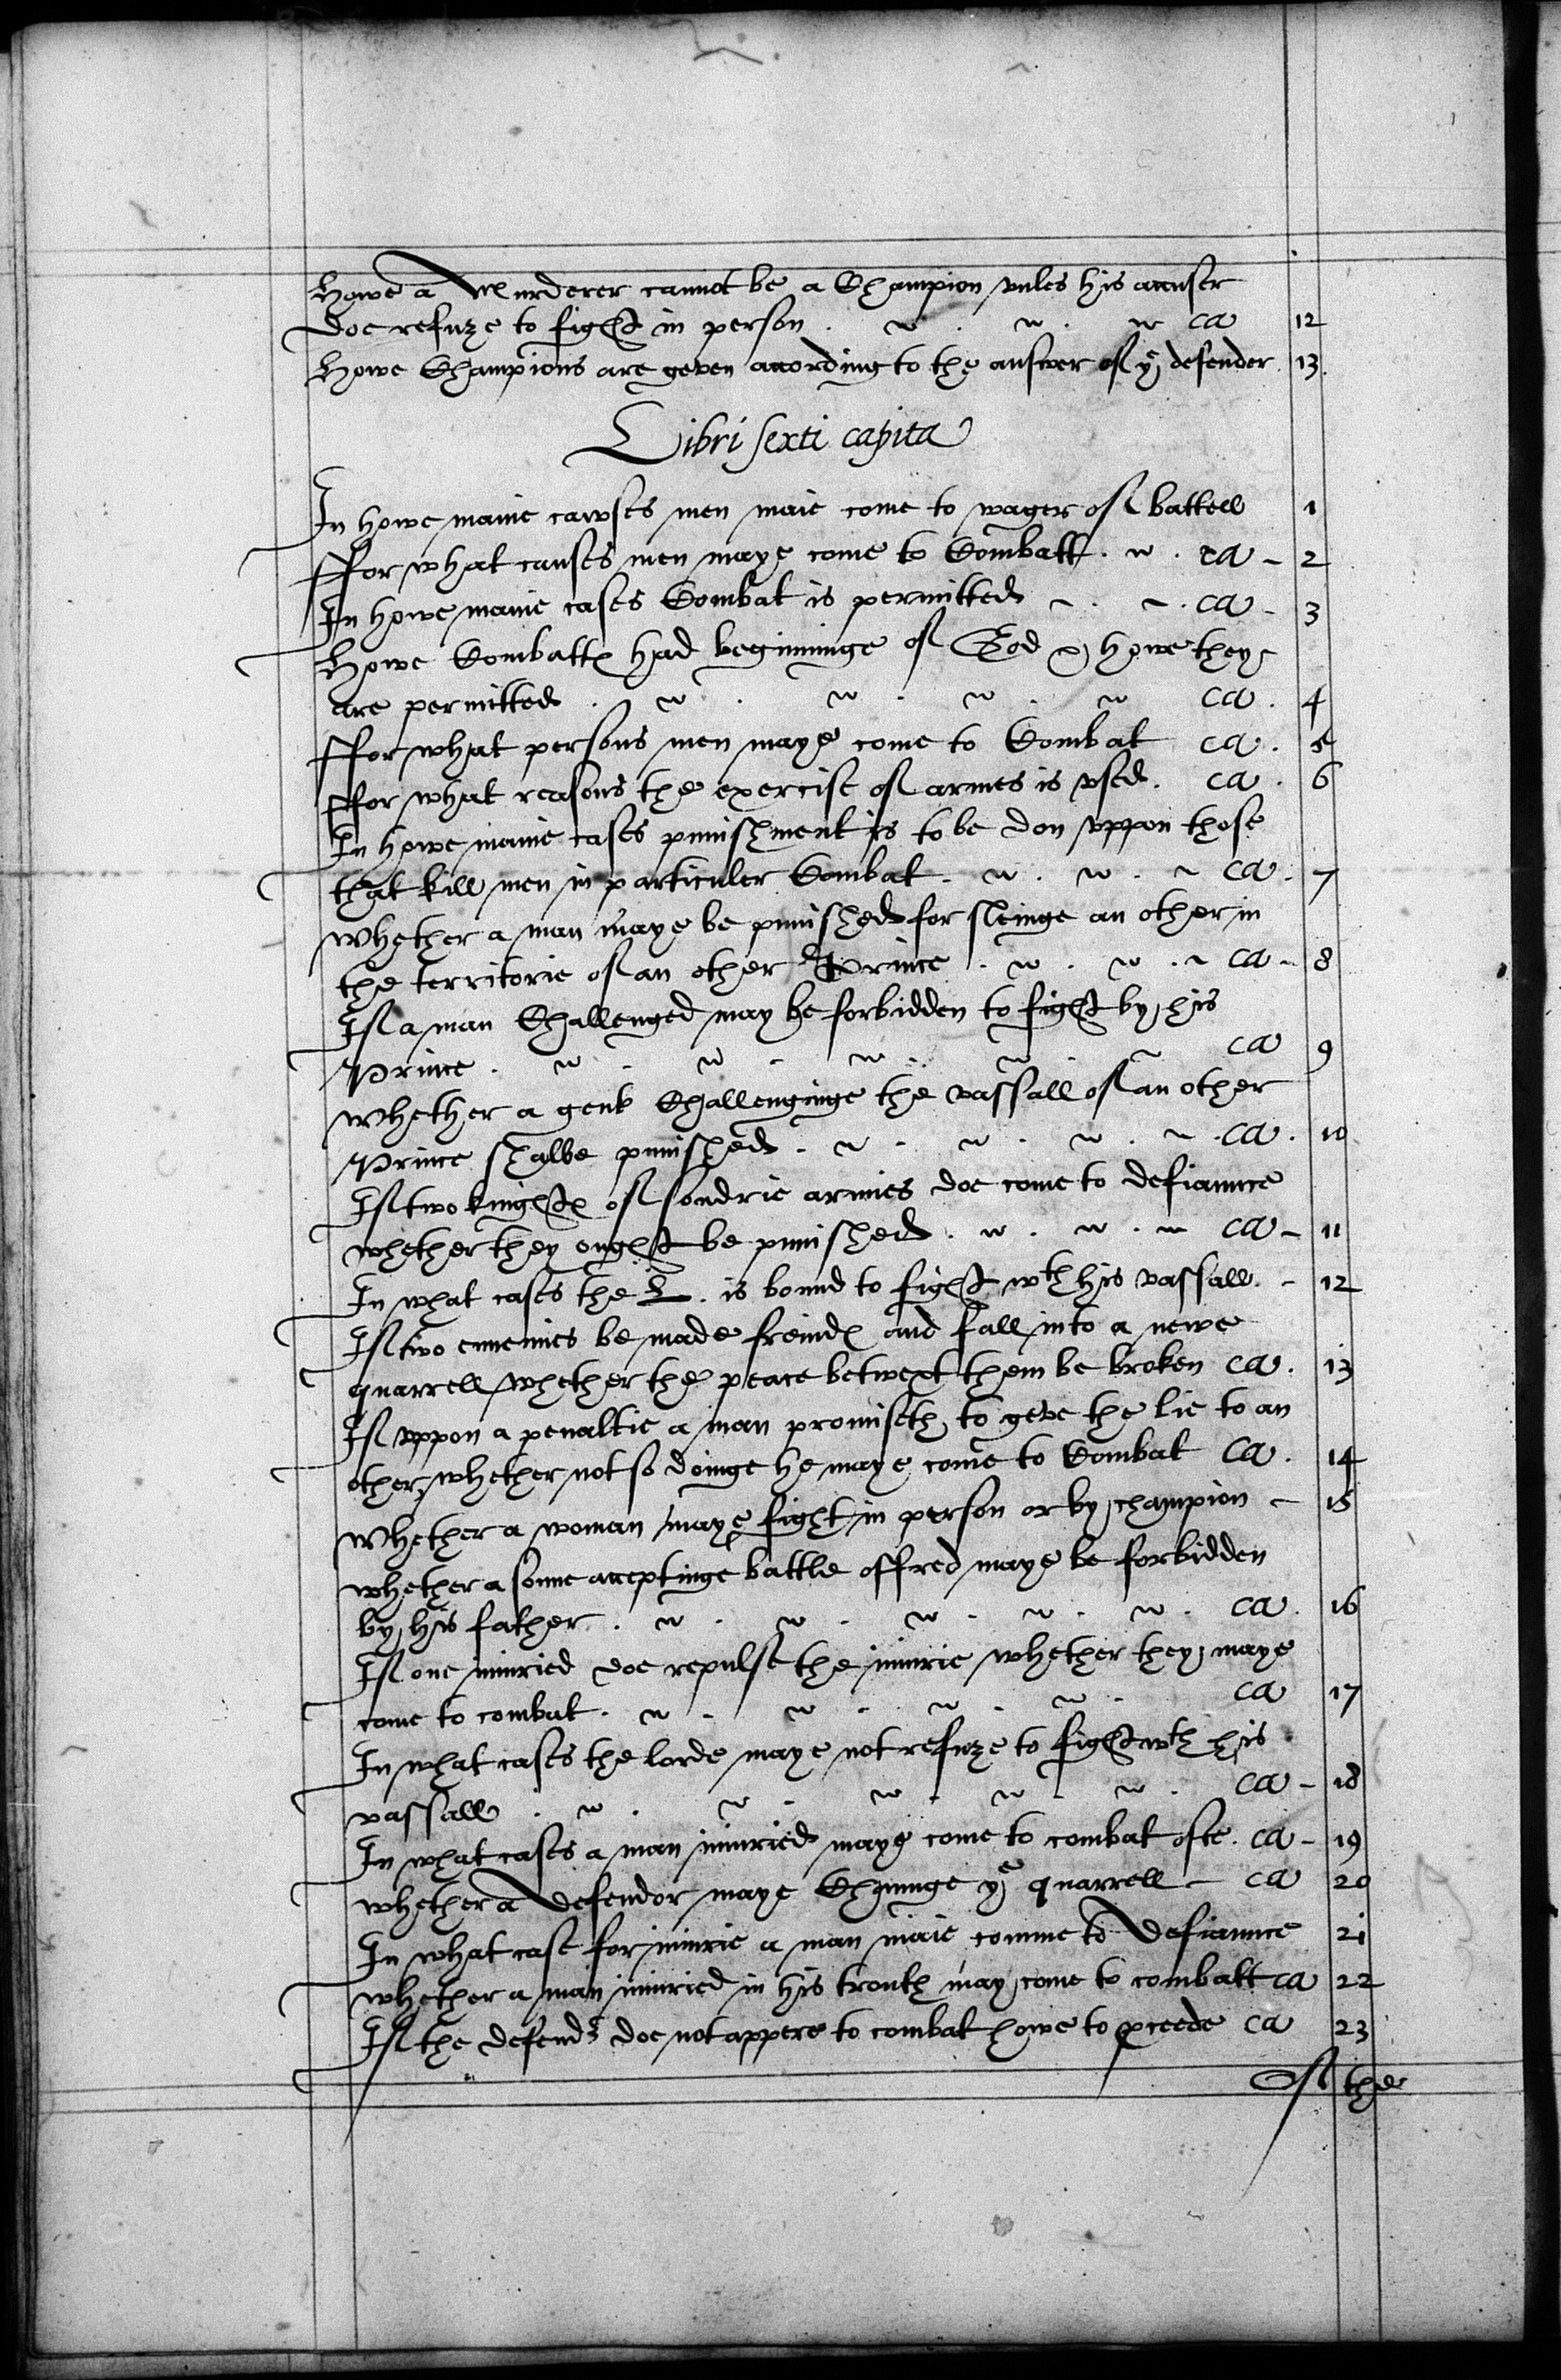 Howe a Murderer cannot be a Champion vnles his accuser
doe refuze to fight in person . ca 12
Howe Champions are geven according to the answer of ye defender 13.
Libri sexti capita
In howe manie cawses men maie come to wager of battell 1
ffor what causes men maye come to Combatt . ca - 2
In howe manie cases Combat is permitted . ca - 3
Howe Combattes had beginninge of God & howe they
are permitted . ca . 4
ffor what persons men maye come to Combat ca . 5
ffor what reasons the exercise of armes is vsed . ca . 6
In howe manie cases punishment is to be don vppon those
that kill men in particuler Combat . ca . 7
whether a man maye be punished for sleinge an other in
the territorie of an other Prince . ca - 8
If a man Challenged may be forbidden to fight by his
Prince . ca 9
whether a gent Challenginge the vassall of an other
Prince shalbe punished . ca . 10
If two knightes of sondrie armies doe come to defiannce
whether they ought be punished . ca - 11
In what cases the L. is bound to fight wth his vassall . - 12
If two ennemies be made freindes and fall into a newe
quarrell whether the peace betwext them be broken ca . 13
If vppon a penaltie a man promiseth to geve the lie to an
other, whether not so doinge he maye come to Combat ca . 14
Whether a woman maye fight in person or by champion - 15
whether a sonne acceptinge battle offred maye be forbidden
by his father . ca . 16
If one iniuried doe repulse the iniurie whether they maye
come to combat . ca 17
In what cases the lorde maye not refuze to fight wth his
vassall . ca - 18
In what cases a man iniuried maye come to combat ofte . ca - 19
whether a defendor maye Chaunge ye quarrell - ca 20
In what case for iniurie a man maie comme to defiannce 21
whether a man iniuried in his trouth may come to combatt ca 22
If the defendr doe not appere to combat howe to pceede ca 23
Of the